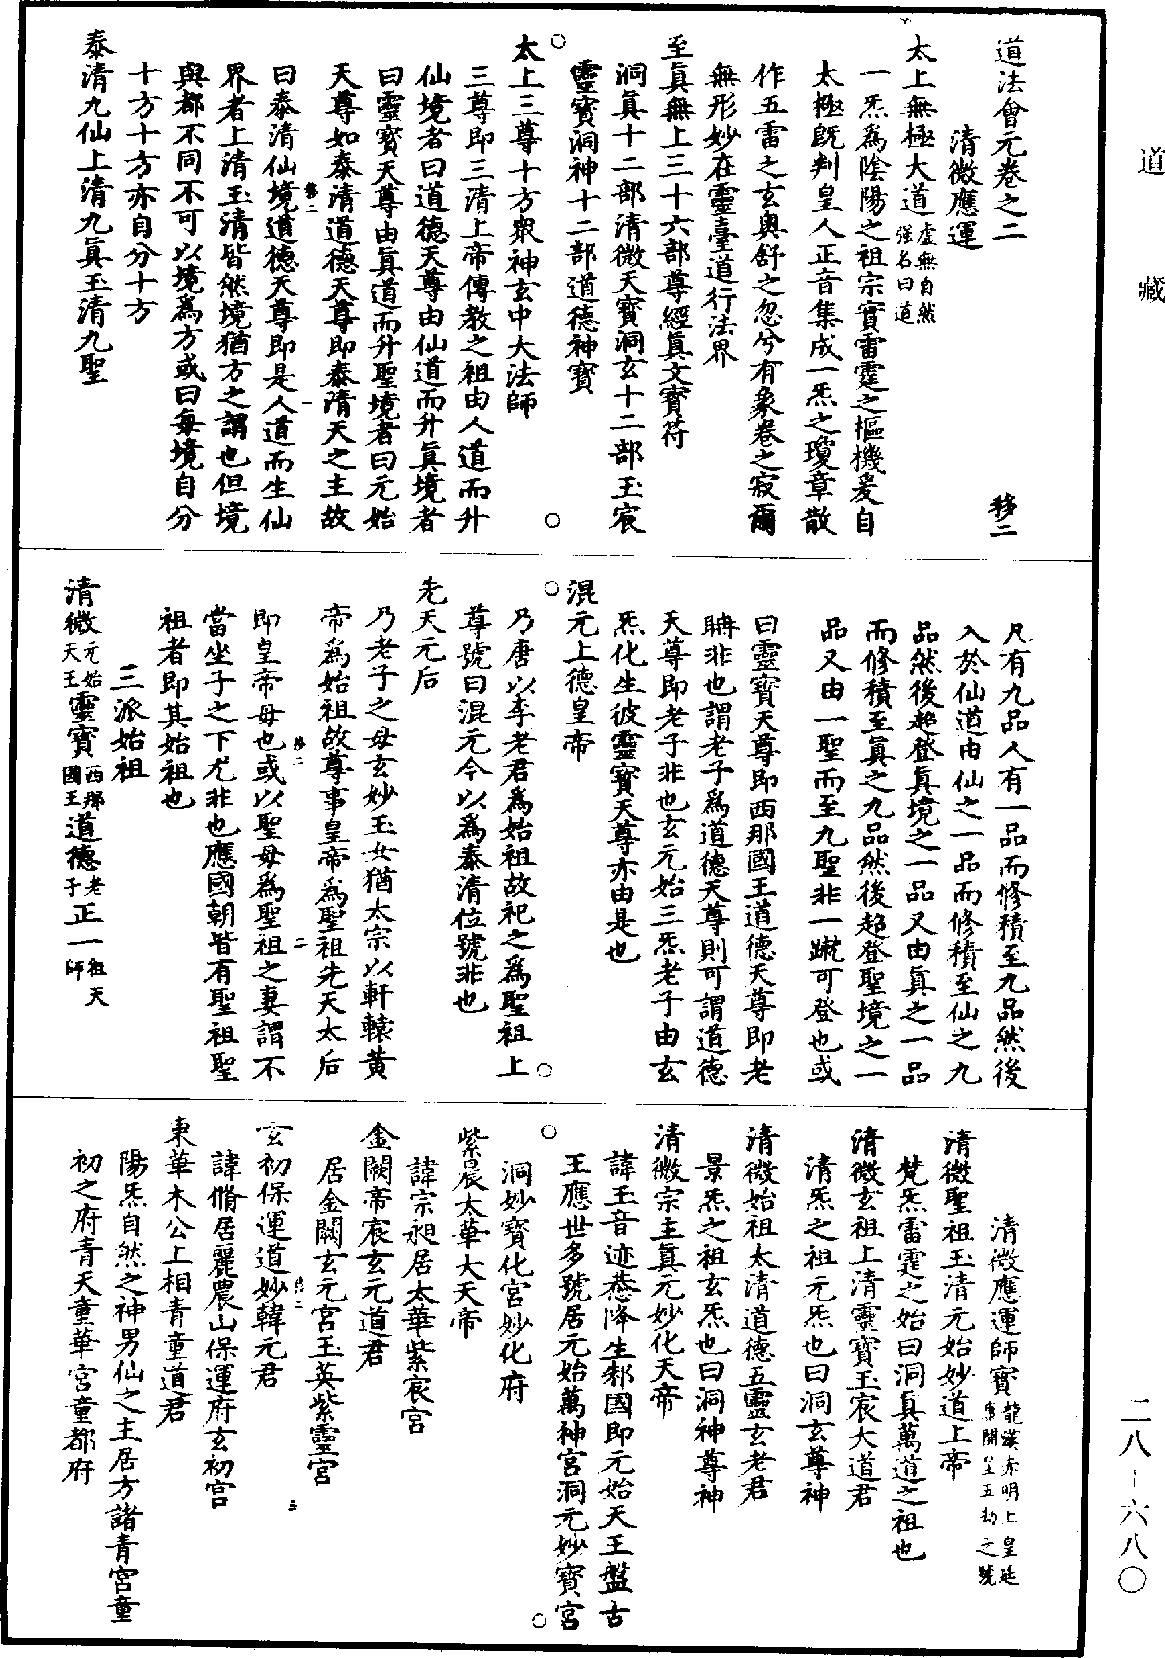 道藏
二八－六八〇
道法會元卷之二　移二
清微應運
太上無極大道虛無自然強名曰道
一炁爲陰陽之祖宗實雷霆之樞機爰自
太極旣判皇人正音集成一炁之瓊章散
作五雷之玄奥舒之忽兮有象卷之寂爾
無形妙在靈臺道行法界
至眞無上三十六部尊經眞文寶符
洞眞十二部清微天寶洞玄十二部玉宸
靈寶洞神十二部道德神寶
太上三尊十方衆神玄中大法師
三尊即三清上帝傳教之祖由人道而升
仙境者曰道德天尊由仙道而升眞境者
曰靈寶天尊由眞道而升聖境者曰元始
天尊如泰清道德天尊即泰清天之主故
移二　一
曰泰清仙境道德天尊即是人道而生仙
界者上清玉清皆然境猶方之謂也但境
與都不同不可以境爲方或曰每境自分
十方十方亦自分十方
泰清九仙上清九眞玉清九聖
凡有九品人有一品而修積至九品然後
入於仙道由仙之一品而修積至仙之九
品然後超登眞境之一品又由眞之一品
而修積至眞之九品然後超登聖境之一
品又由一聖而至九聖非一蹴可登也或
曰靈寶天尊即西那國王道德天尊即老
聃非也謂老子爲道德天尊則可謂道德
天尊即老子非也玄元始三炁老子由玄
炁化生彼靈寶天尊亦由是也
混元上德皇帝
乃唐以李老君爲始祖故祀之爲聖祖上
尊號曰混元今以爲泰清位號非也
先天元后
乃老子之母玄妙玉女猶太宗以軒轅黄
帝爲始祖故尊事皇帝爲聖祖先天太后
移二　二
即皇帝母也或以聖母爲聖祖之妻謂不
當坐子之下尤非也應國朝皆有聖祖聖
祖者即其始祖也
三派始祖
清微元始天王靈寶西那國王道德老子正一祖天師
清微應運師寶龍漢赤明上皇延康開皇五劫之號
清微聖祖玉清元始妙道上帝
梵炁雷霆之始曰洞眞萬道之祖也
清微玄祖上清靈寶玉宸大道君
清炁之祖元炁也曰洞玄尊神
清微始祖太清道德五靈玄老君
景炁之祖玄炁也曰洞神尊神
清微宗主眞元妙化天帝
諱玉音迹慈降生郄國即元始天王盤古
王應世多號居元始萬神宮洞元妙寶宮
洞妙寶化宮妙化府
紫晨太華大天帝
諱宗昶居太華紫宸宮
金闕帝宸玄元道君
居金闕玄元宮玉英紫靈宮
移二　三
玄初保運道妙韓元君
諱脩居麗農山保運府玄初宮
東華木公上相青童道君
陽炁自然之神男仙之主居方諸青宮童
初之府青天童華宮童都府